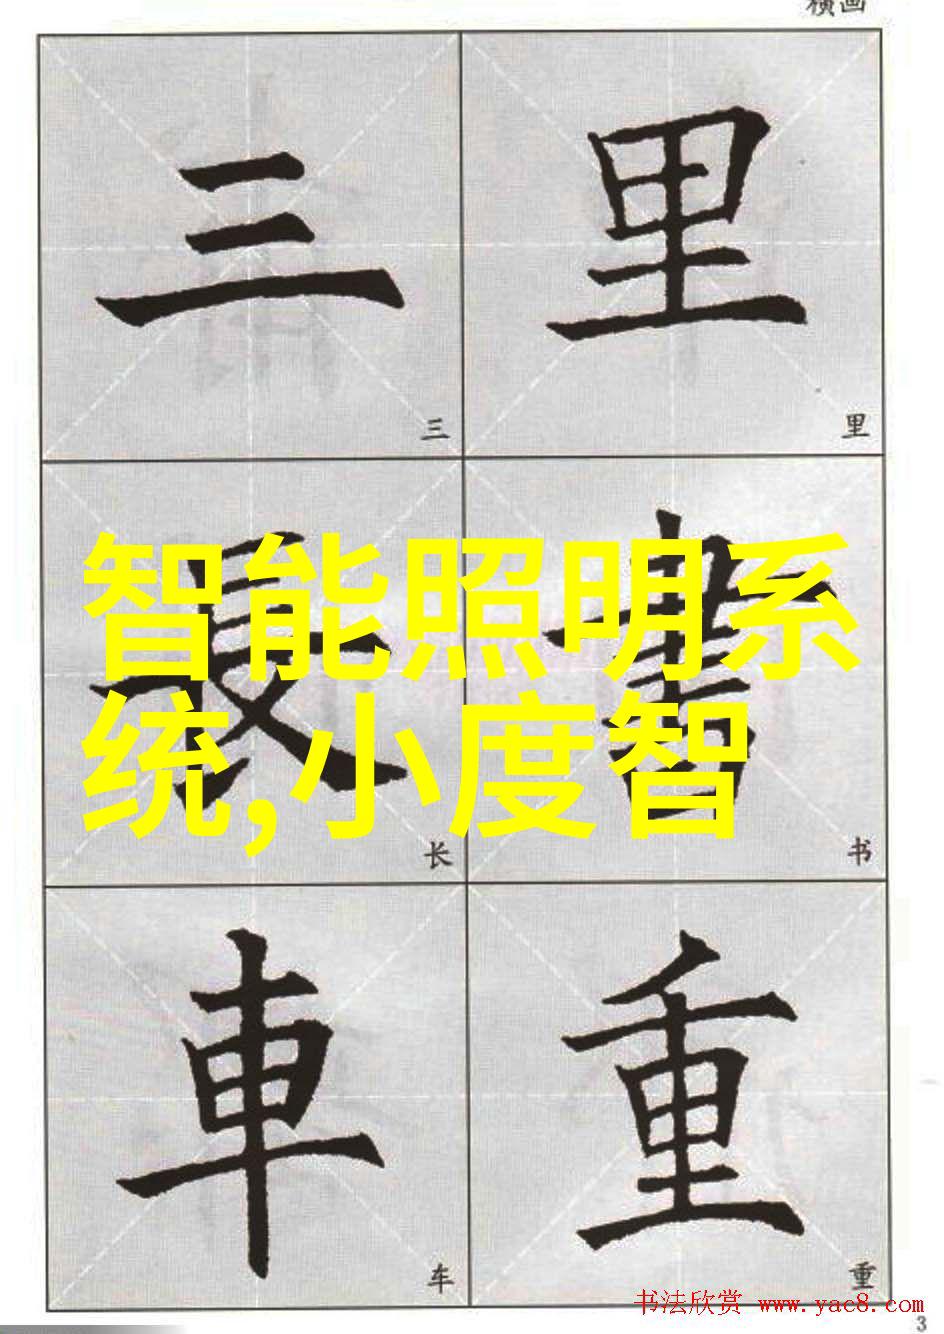 横画
三 里
三 里
長 書
智能照明系
统,小度智
长 书
車 重
车 重
书法欣赏 www.yac8.com
3